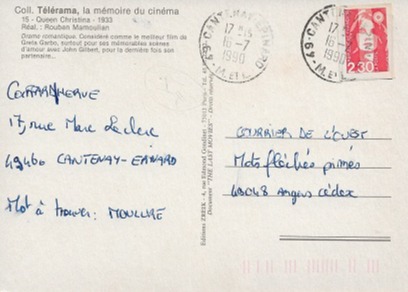 Coll. Télérama, la mémoire du cinéma
15 - Queen Christina - 1933
Réal. : Rouben Mamoulian
Drame romantique. Considéré comme le meilleur film de
Greta Garbo, surtout pour ses mémorables scènes
d'amour avec John Gilbert, pour la dernière fois son
partenaire...
17, rue Marc Leclerc
49460 CANTENAY-EPINARD
Mot à trouver : MOULURE
Editions ZREIK - 4, rue Edmond Gondinet - 75013 Paris
Document "THE LAST MOVIES"
49 - CANTENAY EPINARD
17 H 15
16 - 7
1990
M. ET L.
49 - CANTENAY
17 H 15
16 - 7
1990
M. ET L.
2,30
COURRIER DE L'OUEST
Mots fléchés primés
49048 Angers Cédex